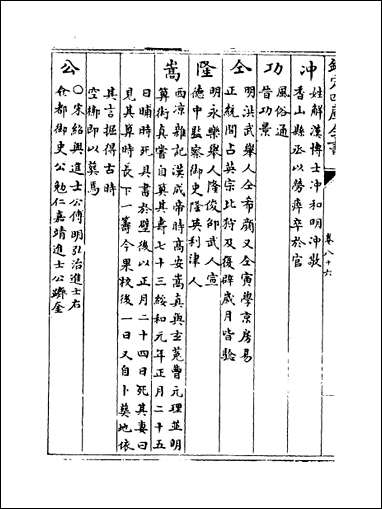 欽定四庫全書
卷八十六
冲
姓解漢博士冲和明冲敬
香山縣丞以勞瘁卒於官
功
風俗通
晉功景
仝
明洪武舉人仝希顔又仝寅學京房易
正統間占英宗北狩及復辟歲月皆驗
隆
明永樂舉人隆俊邵武人宣
德中監察御史隆英利津人
嵩
西凉雜記漢成帝時高安嵩真與𤣥菟曹元理並明
算術真嘗自算其壽七十三綏和元年正月二十五
日晡時死其書於壁後以正月二十四日死其妻曰
見其算時長下一籌今果校後一日又自卜葬地依
其言掘得古時
空槨即以葬焉
公
○宋紹興進士公傅明弘治進士右
僉都御史公勉仁嘉靖進士公躋奎